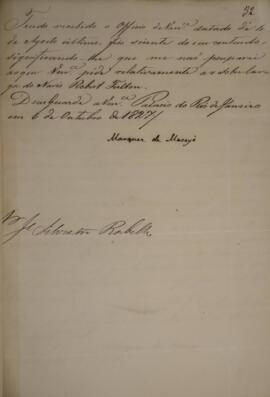 92
Tendo recebido o Officio de Vm.ce datado de 4
de Agosto ultimo, fico sciente do seu contendo,
significando-lhe que me não pouparei
ao que Vm.ce pide relativamente
do Navio Robert Fulton.
Deus Guarde a Vm.ce Palacio do Rio de Janeiro
em 6 de Outubro de 1827
Marquez de Maceyó
Silvestre Rebello